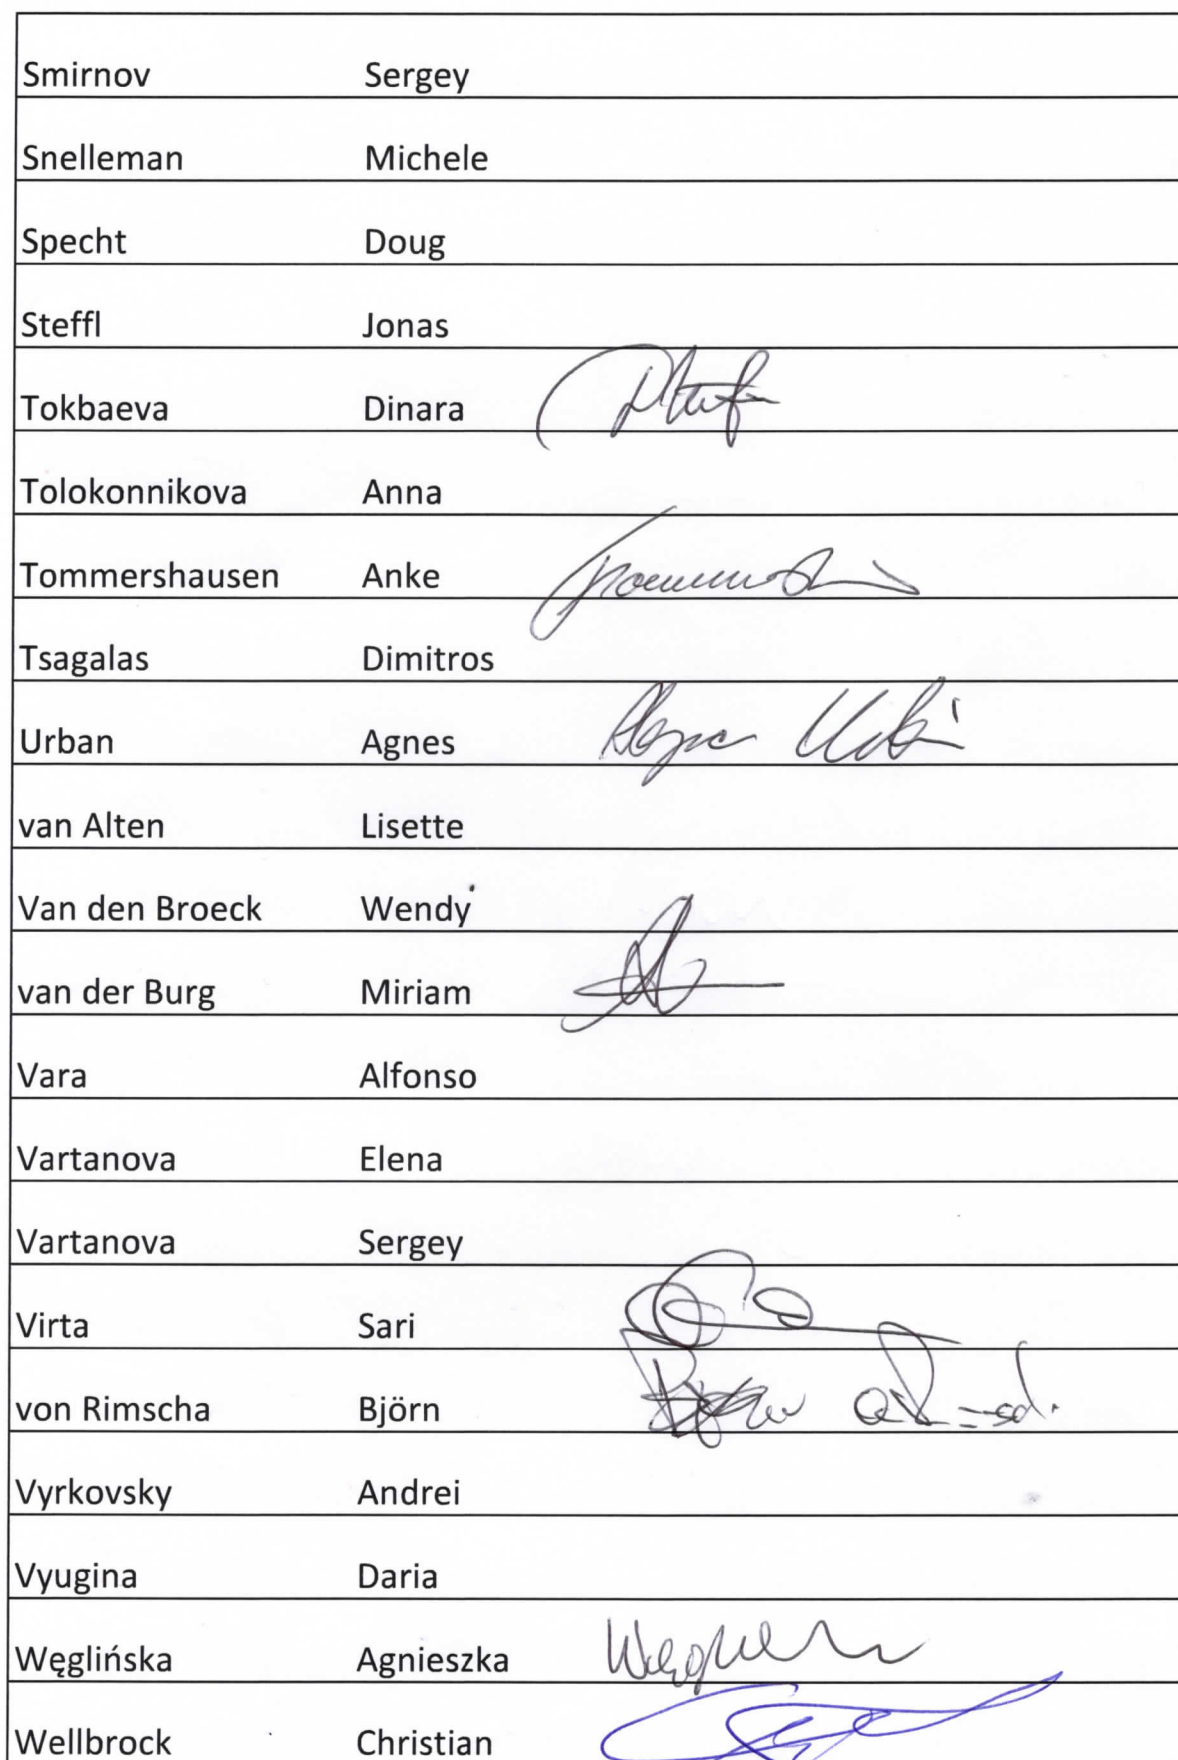 Smirnov Sergey
Snelleman Michele
Specht Doug
Steffl Jonas
Tokbaeva Dinara
Tolokonnikova Anna
Tommershausen Anke
Tsagalas Dimitros
Urban Agnes
van Alten Lisette
Van den Broeck Wendy
van der Burg Miriam
Vara Alfonso
Vartanova Elena
Vartanova Sergey
Virta Sari
von Rimscha Björn
Vyrkovsky Andrei
Vyugina Daria
Węglińska Agnieszka
Wellbrock Christian